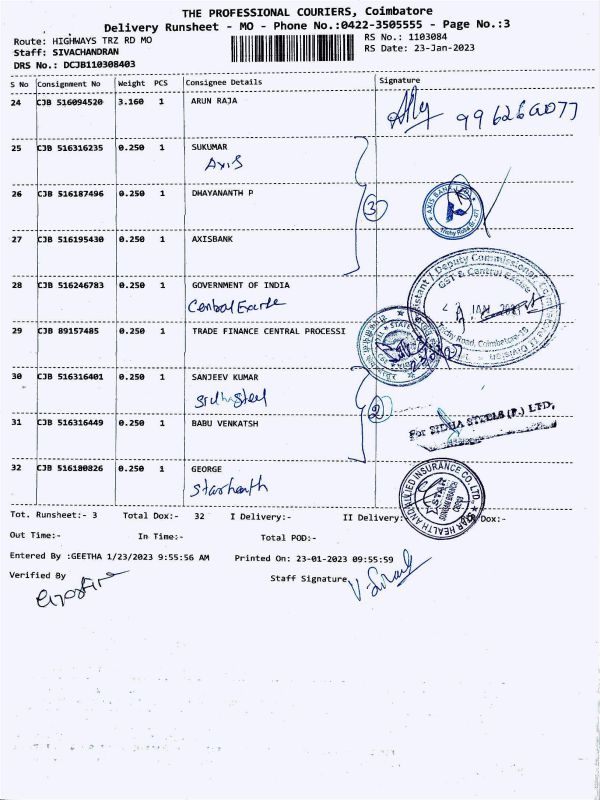 THE PROFESSIONAL COURIERS, Coimbatore
Delivery Runsheet - MO - Phone No.:0422-3505555 - Page No.:3
Route: HIGHWAYS TRZ RD MO RS No.: 1103084
Staff: SIVACHANDRAN RS Date: 23-Jan-2023
DRS No.: DCJB110308403
S No Consignment No Weight PCS Consignee Details Signature
24 CJB 516094520 3.160 1 ARUN RAJA
25 CJB 516316235 0.250 1 SUKUMAR
Axis
26 CJB 516187496 0.250 1 DHAYANANTH P
3
AXIS BANK
27 CJB 516195430 0.250 1 AXISBANK
28 CJB 516246783 0.250 1 GOVERNMENT OF INDIA
Central Excise
GST & Central Excise
29 CJB 89157485 0.250 1 TRADE FINANCE CENTRAL PROCESSI
30 CJB 516316401 0.250 1 SANJEEV KUMAR
2
For SIDHA STEELS (P.) LTD,
31 CJB 516316449 0.250 1 BABU VENKATSH
32 CJB 516180826 0.250 1 GEORGE
Starhealth
STAR HEALTH AND ALLIED INSURANCE CO. LTD.
Tot. Runsheet:- 3 Total Dox:- 32 I Delivery:- II Delivery:- Dox:-
Out Time:- In Time:- Total POD:-
Entered By :GEETHA 1/23/2023 9:55:56 AM Printed On: 23-01-2023 09:55:59
Verified By Staff Signature